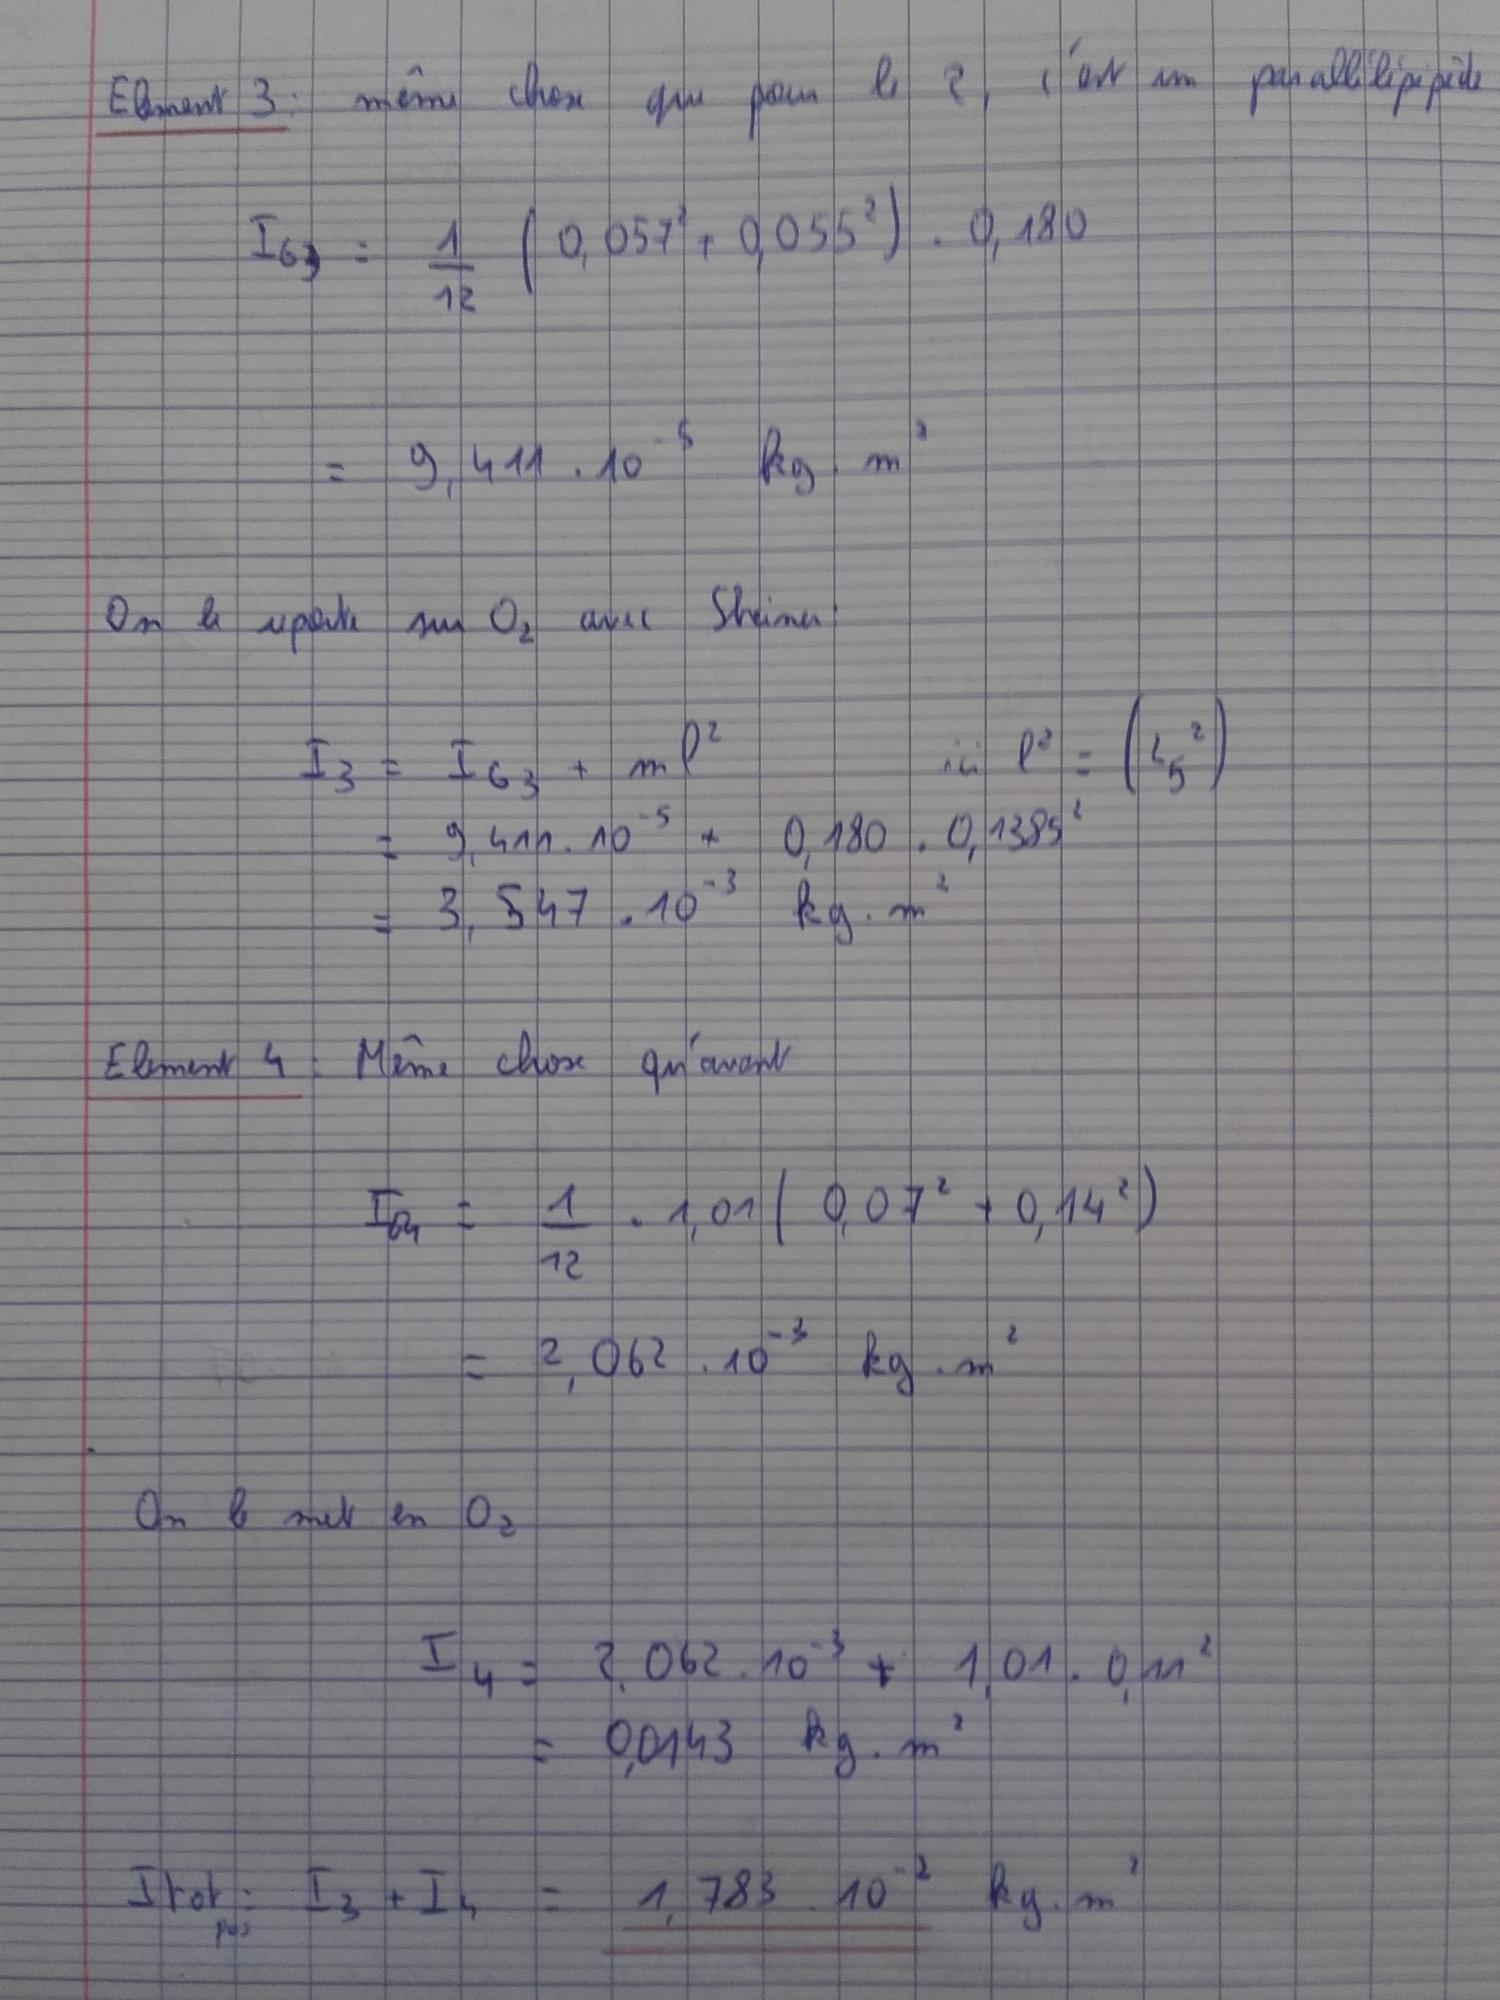 Element 3 : même chose que pour le 2, c'est un parallélépipède
I_G3 = 1/12 (0,057² + 0,055²) . 0,180
= 9,411 . 10⁻⁵ kg . m²
On le reporte sur O₂ avec Steiner
I₃ = I_G3 + m l² ici l² = (L₅²)
= 9,411 . 10⁻⁵ + 0,180 . 0,1385²
= 3,547 . 10⁻³ kg . m²
Element 4 : Même chose qu'avant
I_G4 = 1/12 . 1,01 ( 0,07² + 0,14² )
= 2,062 . 10⁻³ kg . m²
On le met en O₂
I₄ = 2,062 . 10⁻³ + 1,01 . 0,11²
= 0,0143 kg . m²
Itot = I₃ + I₄ = 1,783 . 10⁻² kg . m²